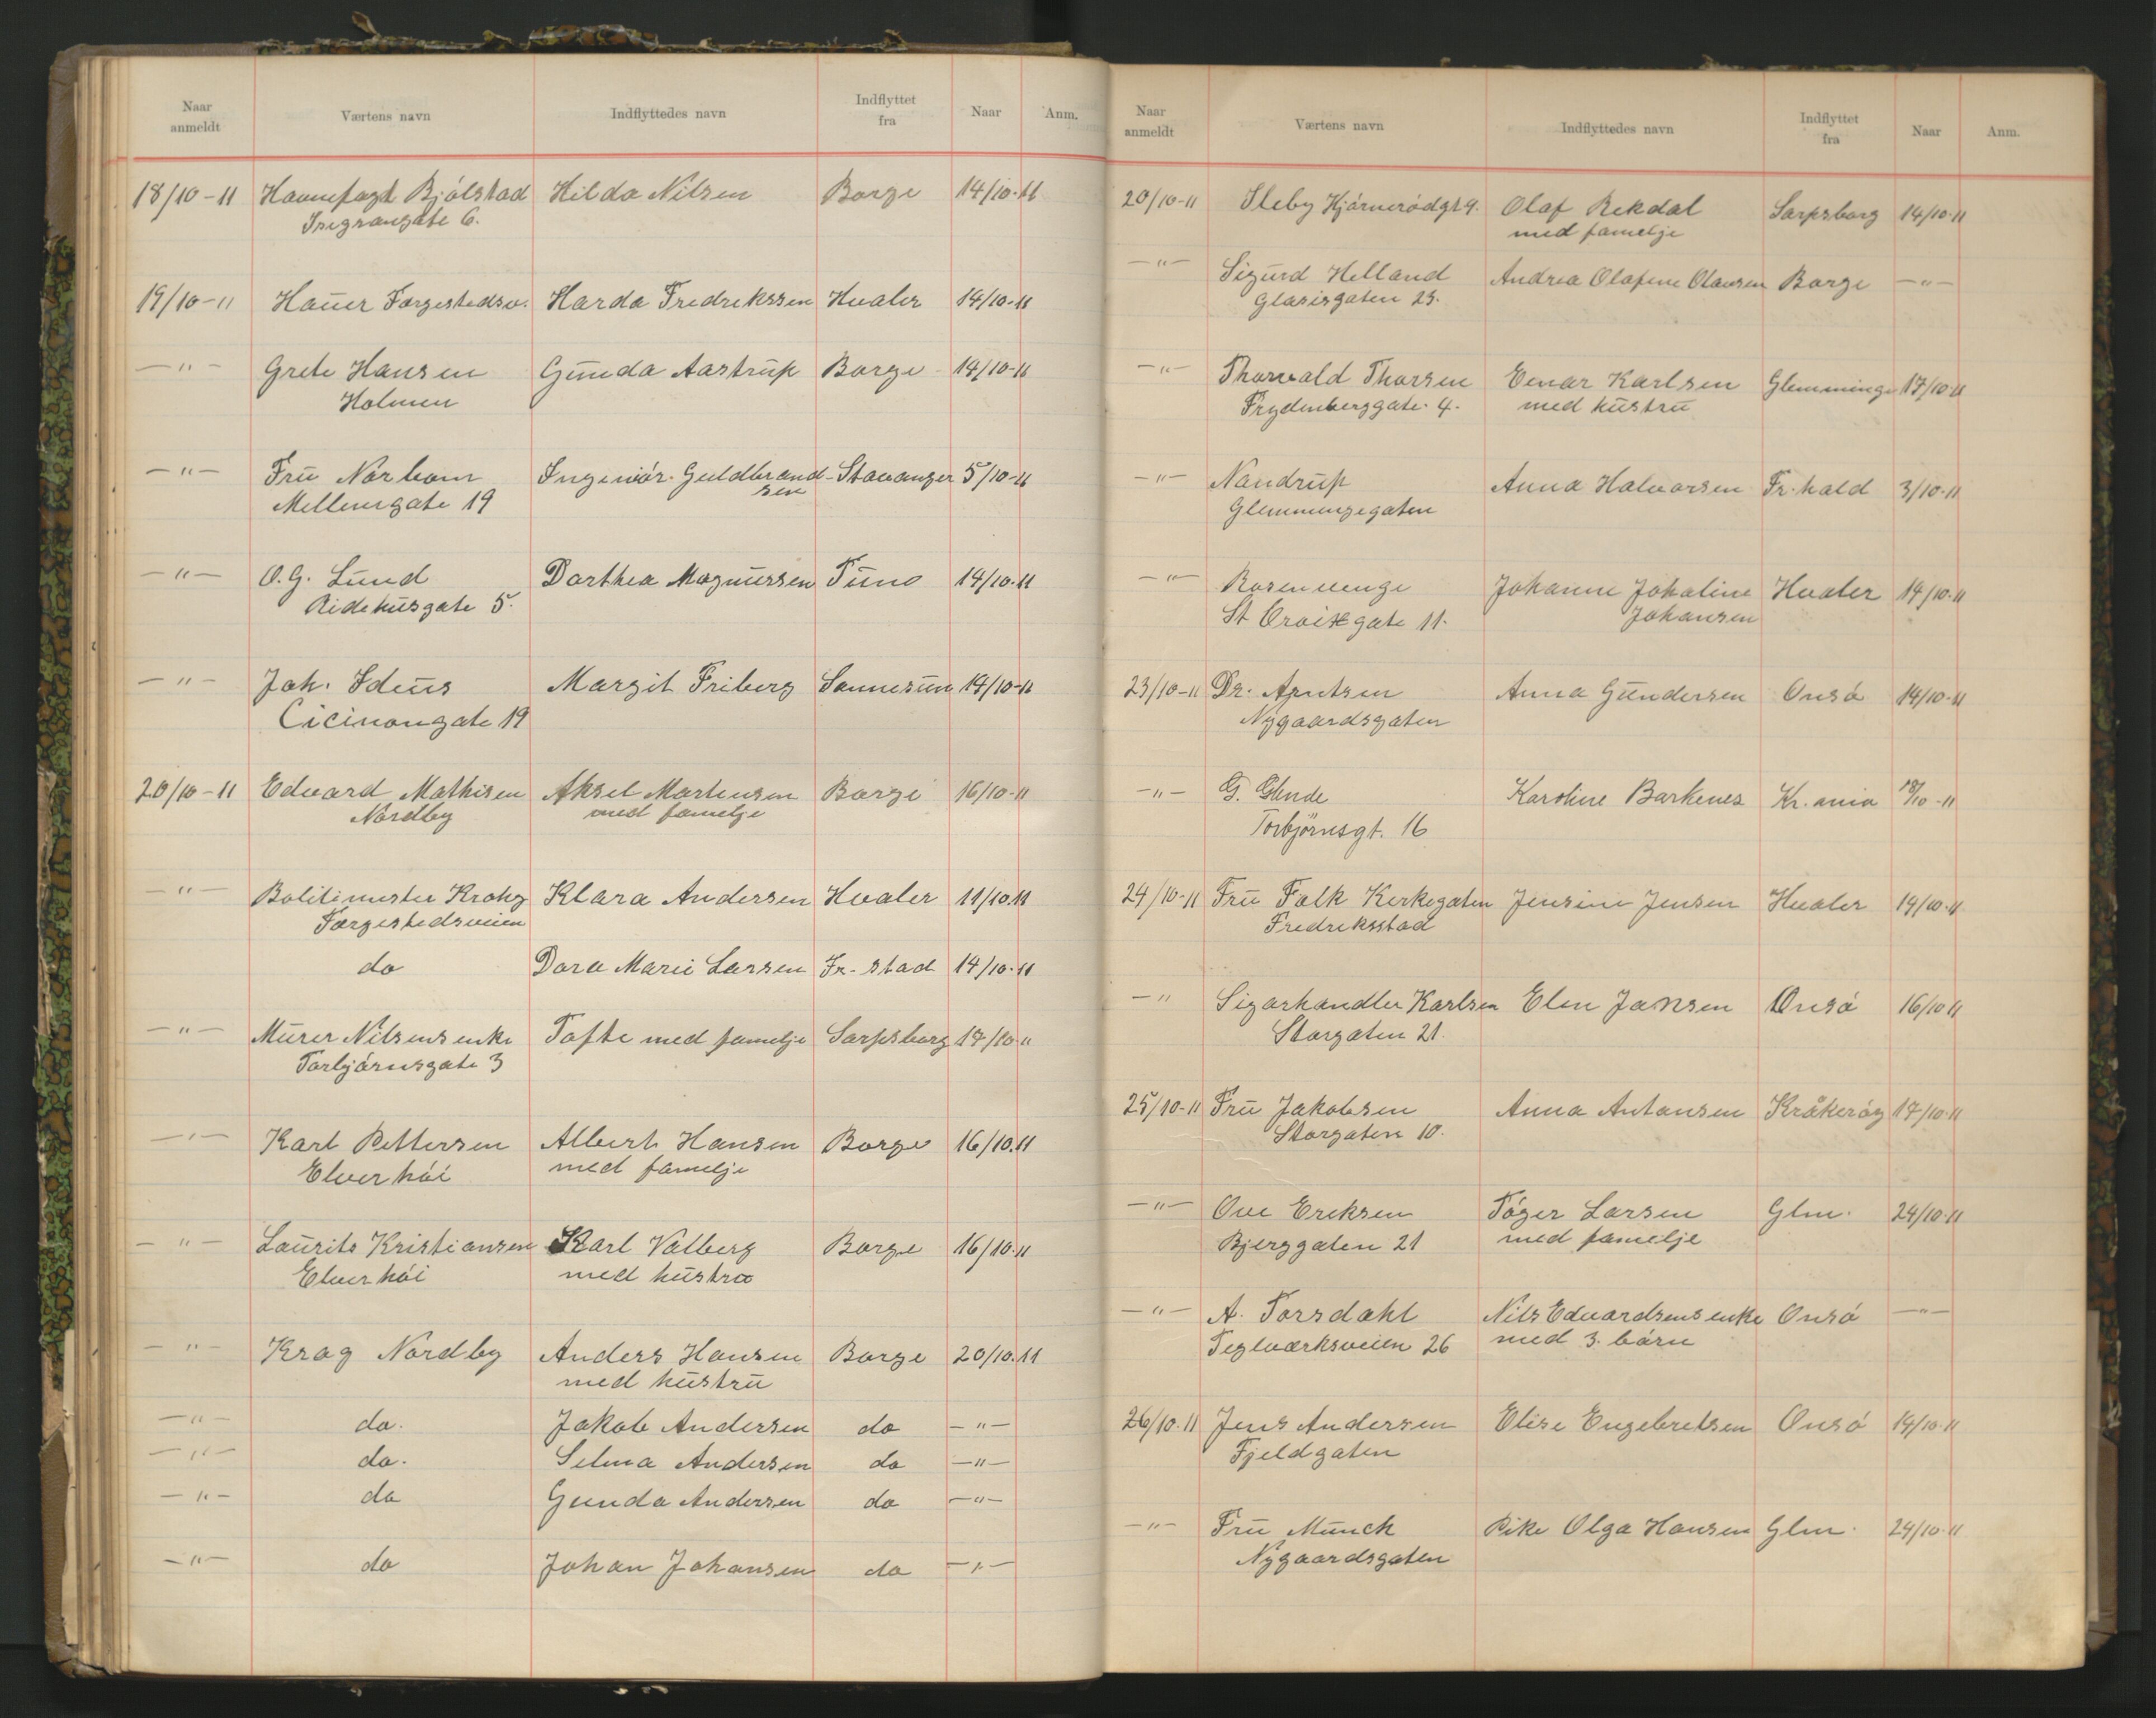 Naar anmeldt Værtens navn Indflyttedes navn Indflyttet fra Naar Anm.
18/10-11 Havnefogt Bjólstad Hilda Nilsen Borge 14/10-11
6.
19/10-11 Hauer Færgestedsv. Harda Fredrekssen Hvaler 14/10-11
—"— Grete Hansen Gunda Aastrup Borge 14/10-11
Holmen
—"— Fru Nórbom Ingeniór Guldbrand- Stavanger 5/10-11
Mellemgate 19 sen
—"— O.G. Lund Dorthea Magnussen Tune 14/10-11
Ridehusgate 5.
—"— Joh. Margit Friberg Sannesun 14/10-11
Cicinongate 19
20/10-11 Edvard Mathisen Aksel Martensen Borge 16/10-11
Nordby med familje
—"— Politimester Krohg Klara Andersen Hvaler 11/10.11
Færgestedsveien
do Dora Marie Larsen Fr-stad 14/10-11
—"— Murer Nilsens enke Tofte med familje Sarpsborg 17/10-11
Torbjórnsgate 3
—"— Karl Pettersen Albert Hansen Borge 16/10.11
Elverhói med familje
—"— Laurits Kristiansen Karl Valberg Borge 16/10.11
Elverhói med hustru
—"— Krog Nordby Anders Hansen Borge 20/10.11
med hustru
—"— do. Jakob Andersen do —"—
—"— do. Selma Andersen do —"—
—"— do Gunda Andersen do —"—
—"— do Johan Johansen do —"—
Naar anmeldt Værtens navn Indflyttedes navn Indflyttet fra Naar Anm.
20/10-11 Sleby Hjórneródgt 9. Olaf Rekdal Sarpsborg 14/10-11
med familje
—"— Sigurd Helland Andrea Olafine Olausen Borge —"—
Glasisgaten 23.
—"— Thorvald Thorsen Einar Karlsen Glemminge 17/10-11
Frydenberggate. 4. med hustru
—"— Nandrup Anna Halvorsen Fr.hald 3/10-11
Glemmengegaten
—"— Rosenvenge Johanne Johaline Hvaler 14/10-11
St Croixgate 11. Johansen
23/10-11 Dr. Arntsen Anna Gundersen Onsó 14/10-11
Nygaardsgaten
—"— G. Glende Karoline Barkenes Kr.ania 18/10-11
Torbjörnsgt. 16
24/10-11 Fru Falk Kerkegaten Jensine Jensen Hvaler 14/10-11
Fredreksstad
—" Sigarhandler Karlsen Elen Jansen Onsó 16/10 11
Storgaten 21.
25/10-11 Fru Jakobsen Anna Antonsen Kråkeróy 17/10-11
Storgaten 10.
—"— Ove Ereksen Tóger Larsen Glm. 24/10-11
Bjerggaten 21 med familje
—"— A. Torsdahl Nils Edvardsens enke Onsó —"—
Teglverksveien 26 med 3. bórn
26/10.11 Jens Andersen Elise Engebretsen Onsó 14/10-11
Fjeldgaten
—"— Fru Munck Pike Olga Hansen Glm. 24/10-11
Nygaardsgaten